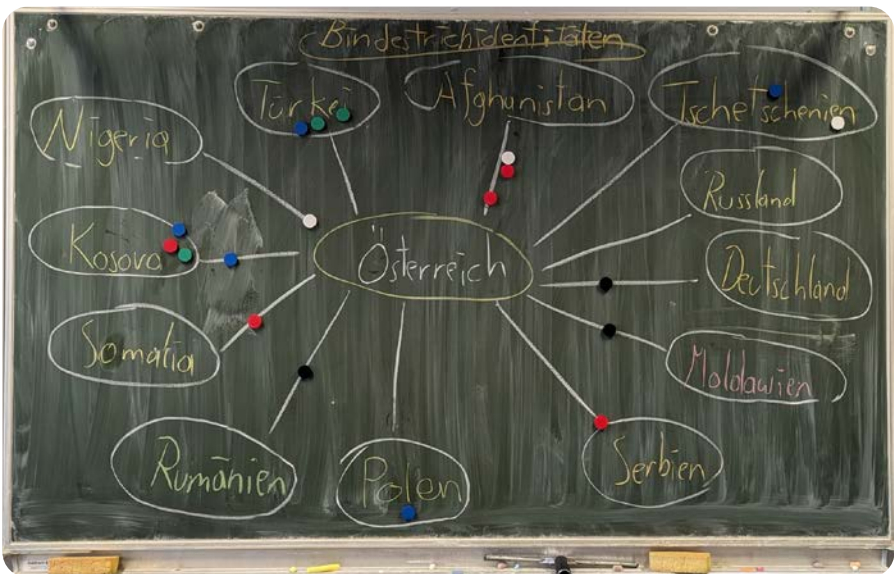 Bindestrichidentitäten
Türkei
Afghanistan
Tschetschenien
Nigeria
Russland
Kosova
Österreich
Deutschland
Somalia
Moldawien
Rumänien
Polen
Serbien